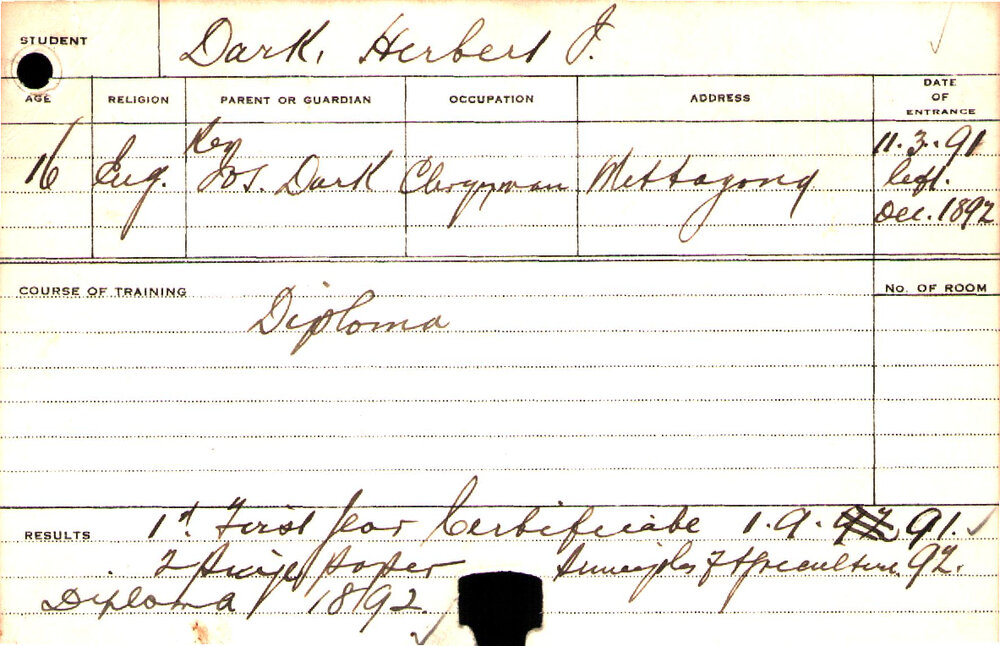 STUDENT Dark, Herbert J.
AGE RELIGION PARENT OR GUARDIAN OCCUPATION ADDRESS DATE OF ENTRANCE
16 Eng. Rev Jos. Dark Clergyman Mittagong 11.3.91
left.
Dec. 1892
COURSE OF TRAINING No. OF ROOM
Diploma
RESULTS 1st First Year Certificate 1.9. 91.
2 Prize paper Principles of Agriculture. 92.
Diploma 1892.